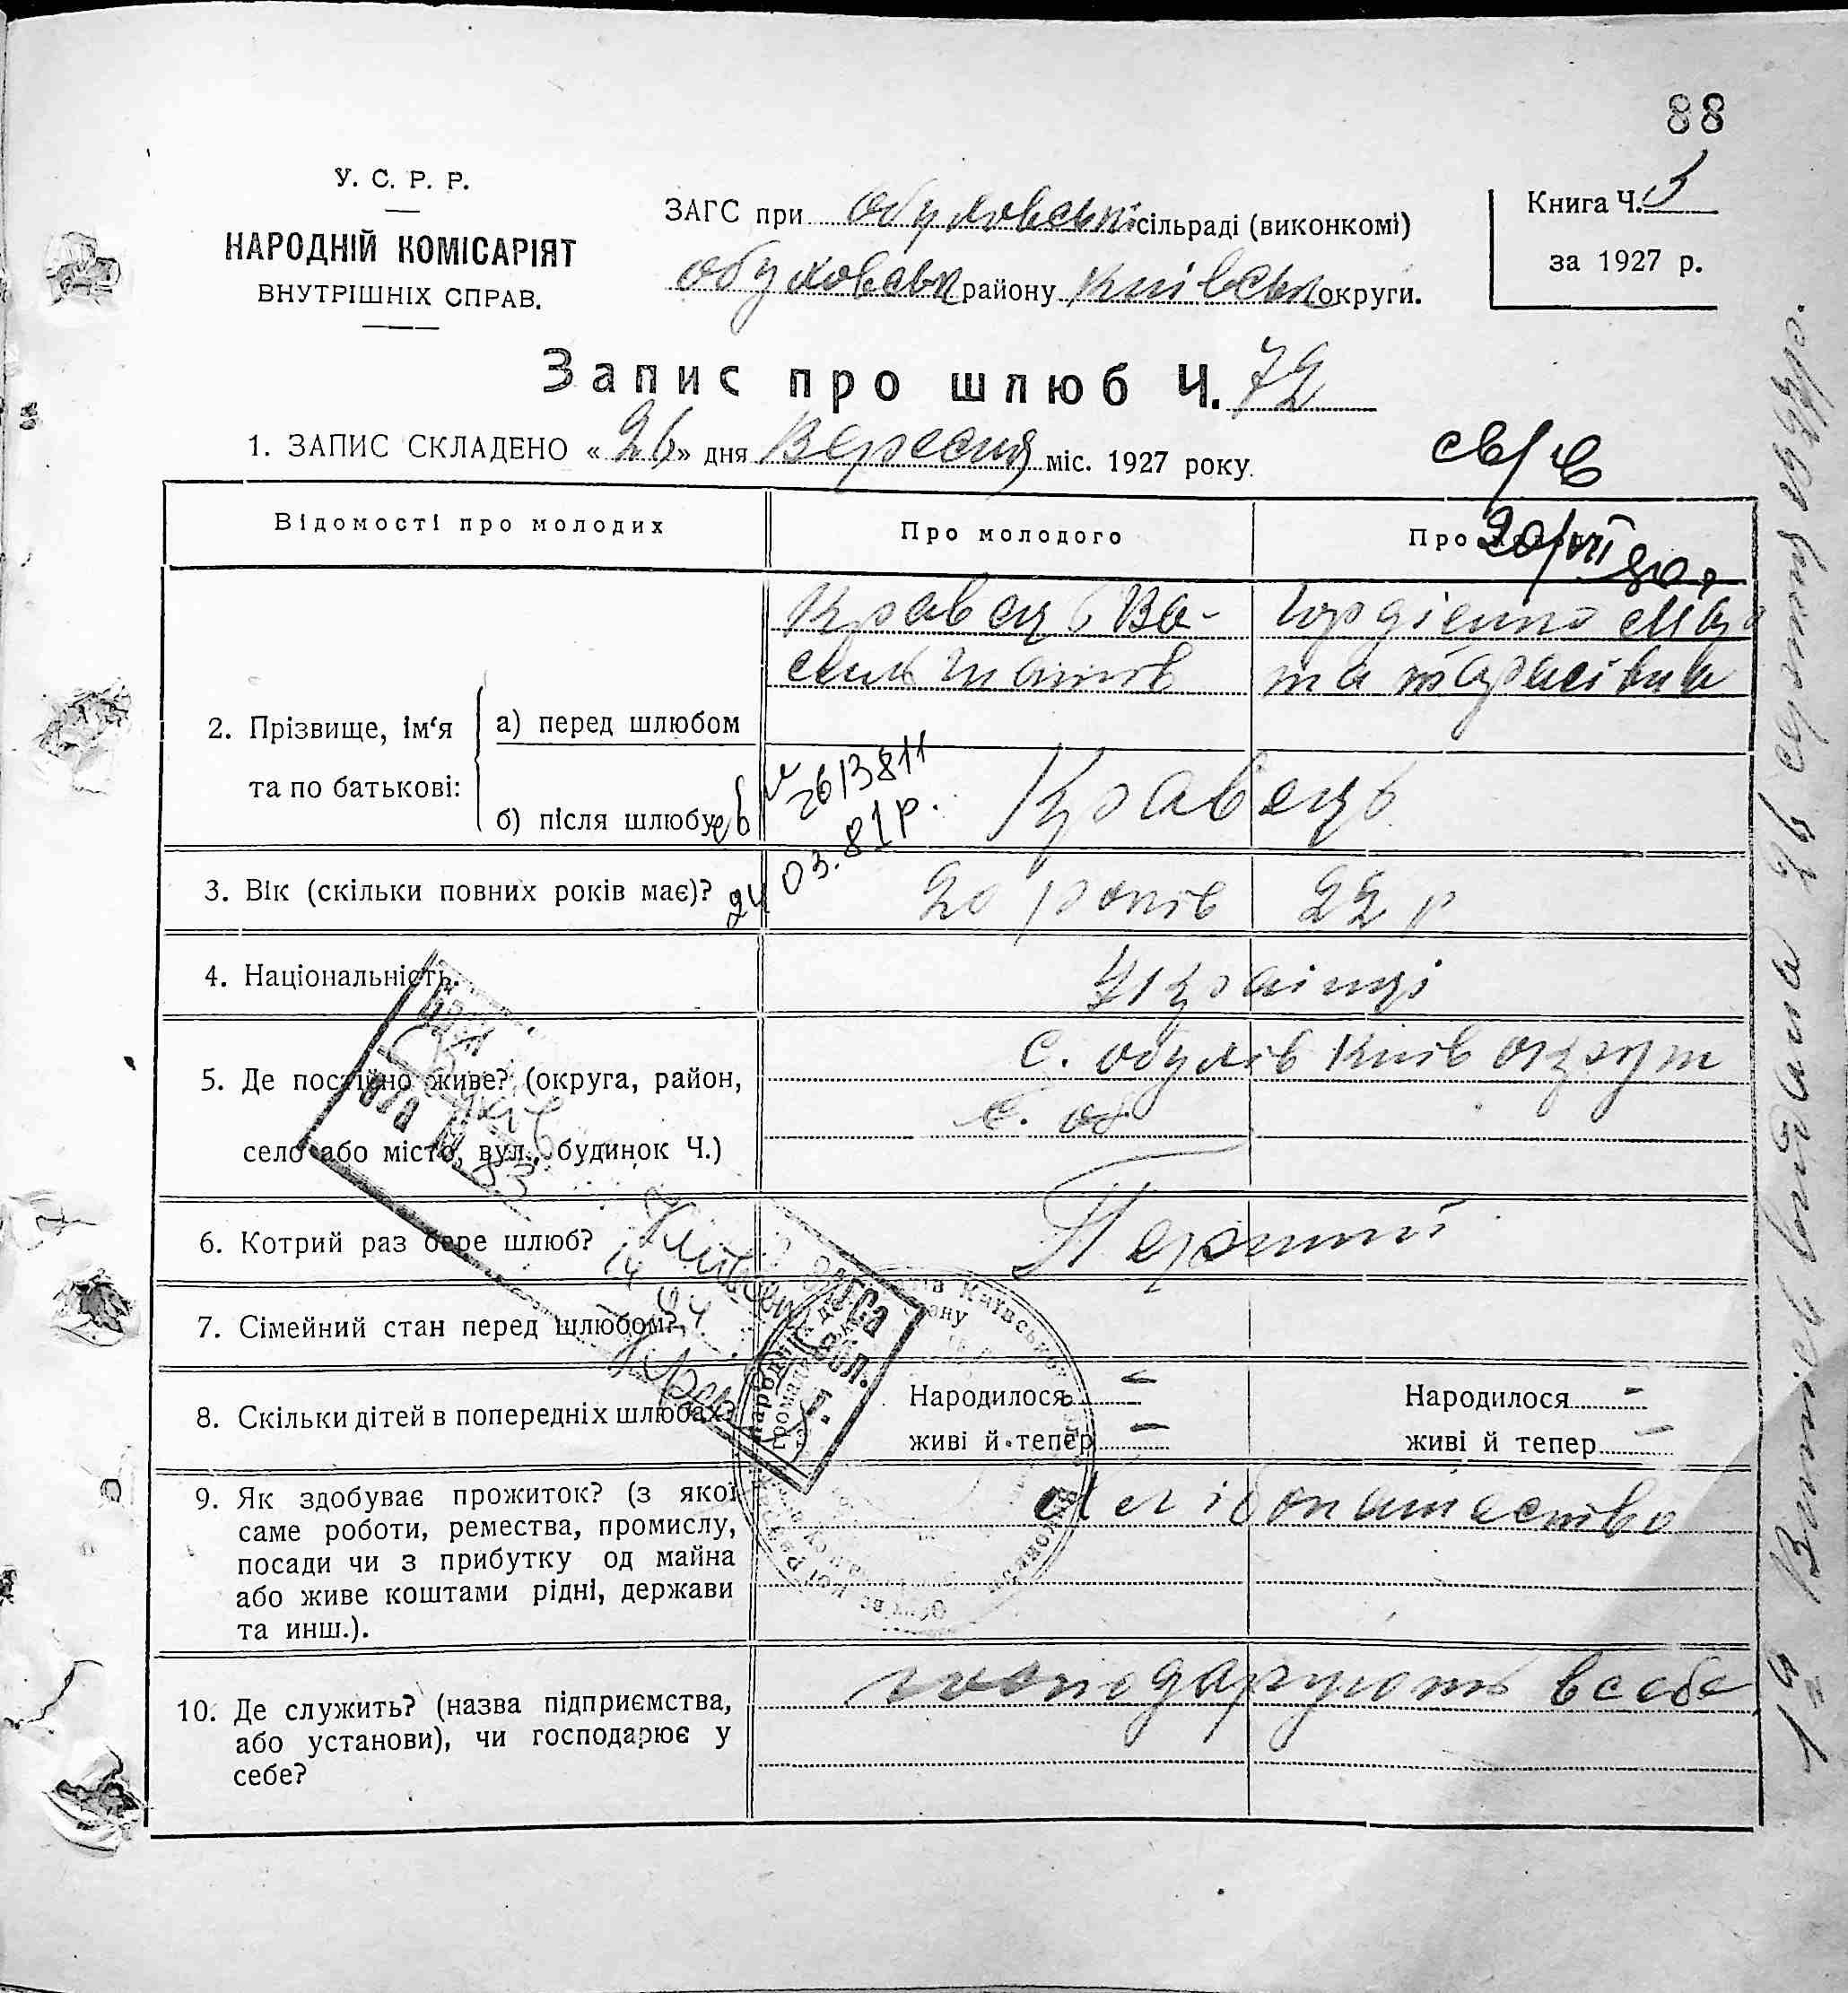 88
У. С. Р. Р.
НАРОДНІЙ КОМІСАРІЯТ
ВНУТРІШНІХ СПРАВ.
ЗАГС при Обуховські сільраді (виконкомі)
Обуховськ району Київськ округи.
Книга Ч.
за 1927 р.
Запис про шлюб Ч. 72
1. ЗАПИС СКЛАДЕНО «26» дня Вересня міс. 1927 року.
20/VII 80 р
Відомості про молодих
Про молодого
Про
2. Прізвище, ім'я та по батькові:
а) перед шлюбом
Кравець Ва-
силь
Гордієнко Мар
та Тарасівна
б) після шлюбу
Кравець
2613811
24 03.81р.
3. Вік (скільки повних років має)? 20 років 22 р
4. Національність. Українці
5. Де постійно живе? (округа, район,
село або місто, вул., будинок Ч.)
с. Обухів Київ округи
с. Об
6. Котрий раз бере шлюб? Перший
7. Сімейний стан перед шлюбом?
8. Скільки дітей в попередніх шлюбах?
Народилося - Народилося -
живі й тепер - живі й тепер -
9. Як здобуває прожиток? (з якої
саме роботи, ремества, промислу,
посади чи з прибутку од майна
або живе коштами рідні, держави
та инш.).
10. Де служить? (назва підприємства,
або установи), чи господарює у
себе?
господарують в себе